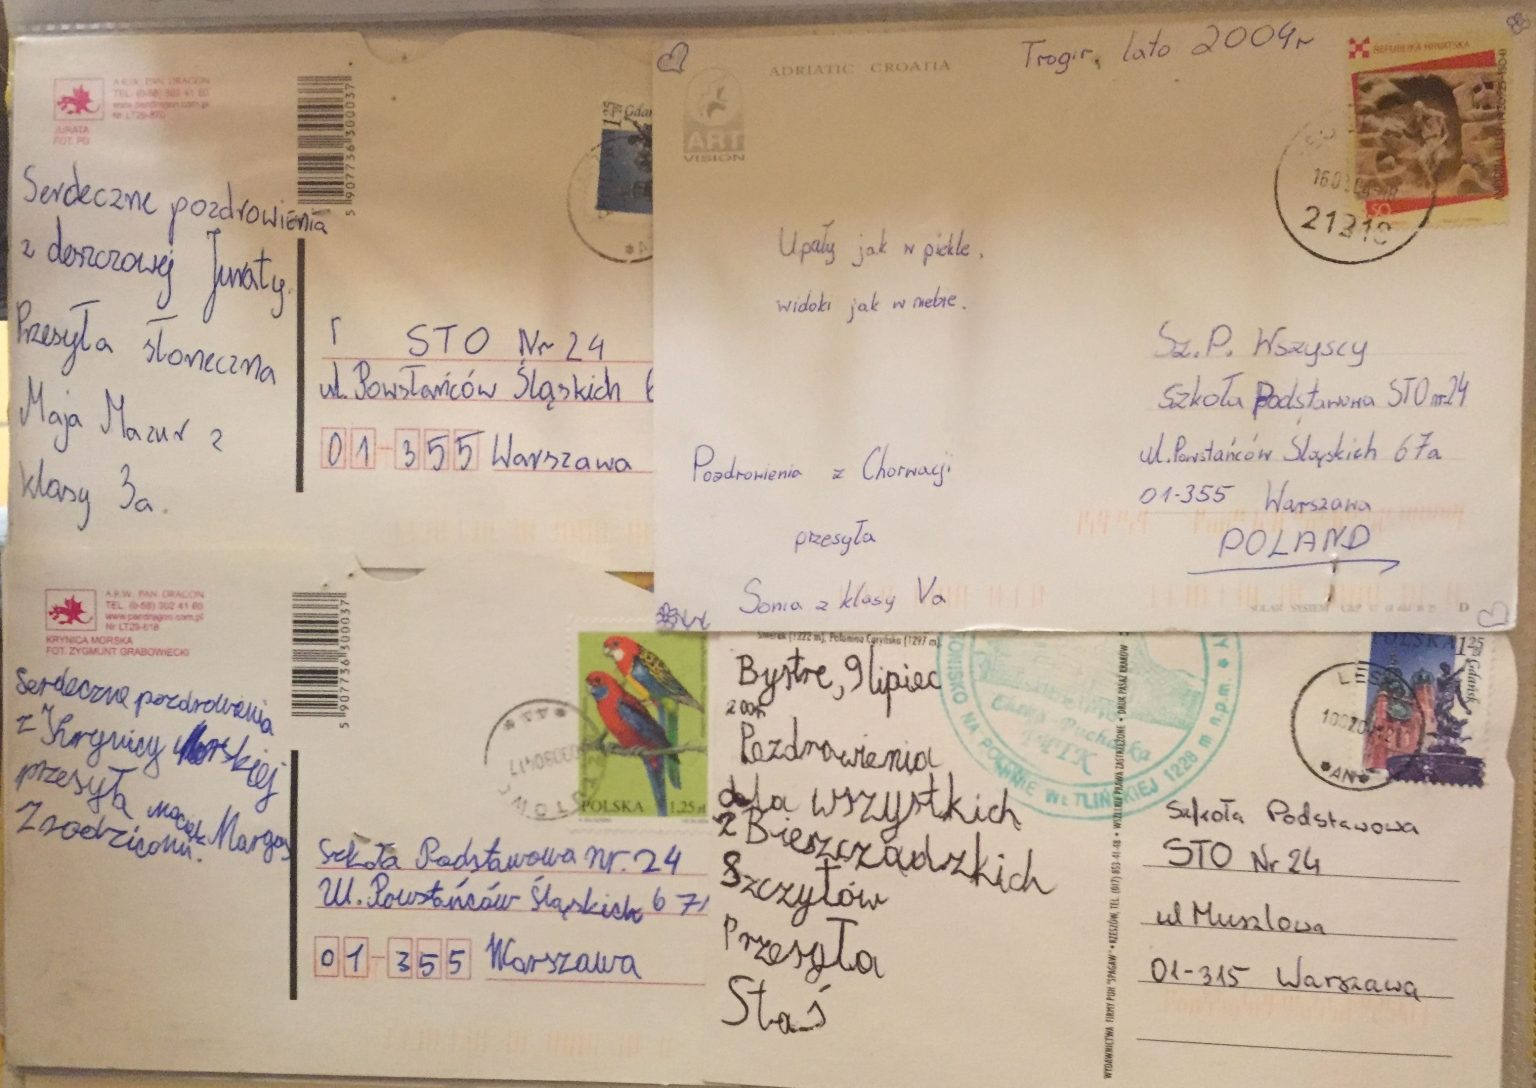 A.R.W. PAN DRAGON
TEL. (0-58) 302 41 60
www.pandragon.com.pl
Nr LT29-870
JURATA
FOT. PG
5 907736 300037
Serdeczne pozdrowienia
z deszczowej Juraty.
Przesyła słoneczna
Maja Mazur z
klasy 3a.
1,25 Gdań
STO Nr 24
ul. Powstańców Śląskich 6
01-355 Warszawa
ADRIATIC CROATIA
ART
VISION
Trogir, lato 2004r
REPUBLIKA HRVATSKA
21218
Upały jak w piekle,
widoki jak w niebie.
Pozdrowienia z Chorwacji
przesyła
Sonia z klasy Va
Sz.P. Wszyscy
Szkoła Podstawowa STO nr 24
ul. Powstańców Śląskich 67a
01-355 Warszawa
POLAND
D
A.R.W. PAN DRAGON
TEL. (0-58) 302 41 60
www.pandragon.com.pl
Nr LT29-618
KRYNICA MORSKA
FOT. ZYGMUNT GRABOWIECKI
5 907736 300037
Serdeczne pozdrowienia
z Krynicy Morskiej
przesyła Maciek Margas
Z rodzicami.
POLSKA 1,25 zł
Szkoła Podstawowa nr. 24
Ul. Powstańców Śląskich 67
01-355 Warszawa
Smerek (1222 m), Połonina Caryńska (1297 m)
Bystre, 9 lipiec
2004
Pozdrowienia
dla wszystkich
z Bieszczadzkich
Szczytów
Przesyła
Staś
NA POŁONINIE WETLIŃSKIEJ 1228 m n.p.m.
PTTK
WYDAWNICTWA FIRMY PUH "SPAGAW" • RZESZÓW, TEL. (017) 853-41-48 • WSZELKIE PRAWA ZASTRZEŻONE • DRUK PASAŻ KRAKÓW
POLSKA 1,25
Gdańsk
LES
Szkoła Podstawowa
STO Nr 24
ul Muszlowa
01-315 Warszawa